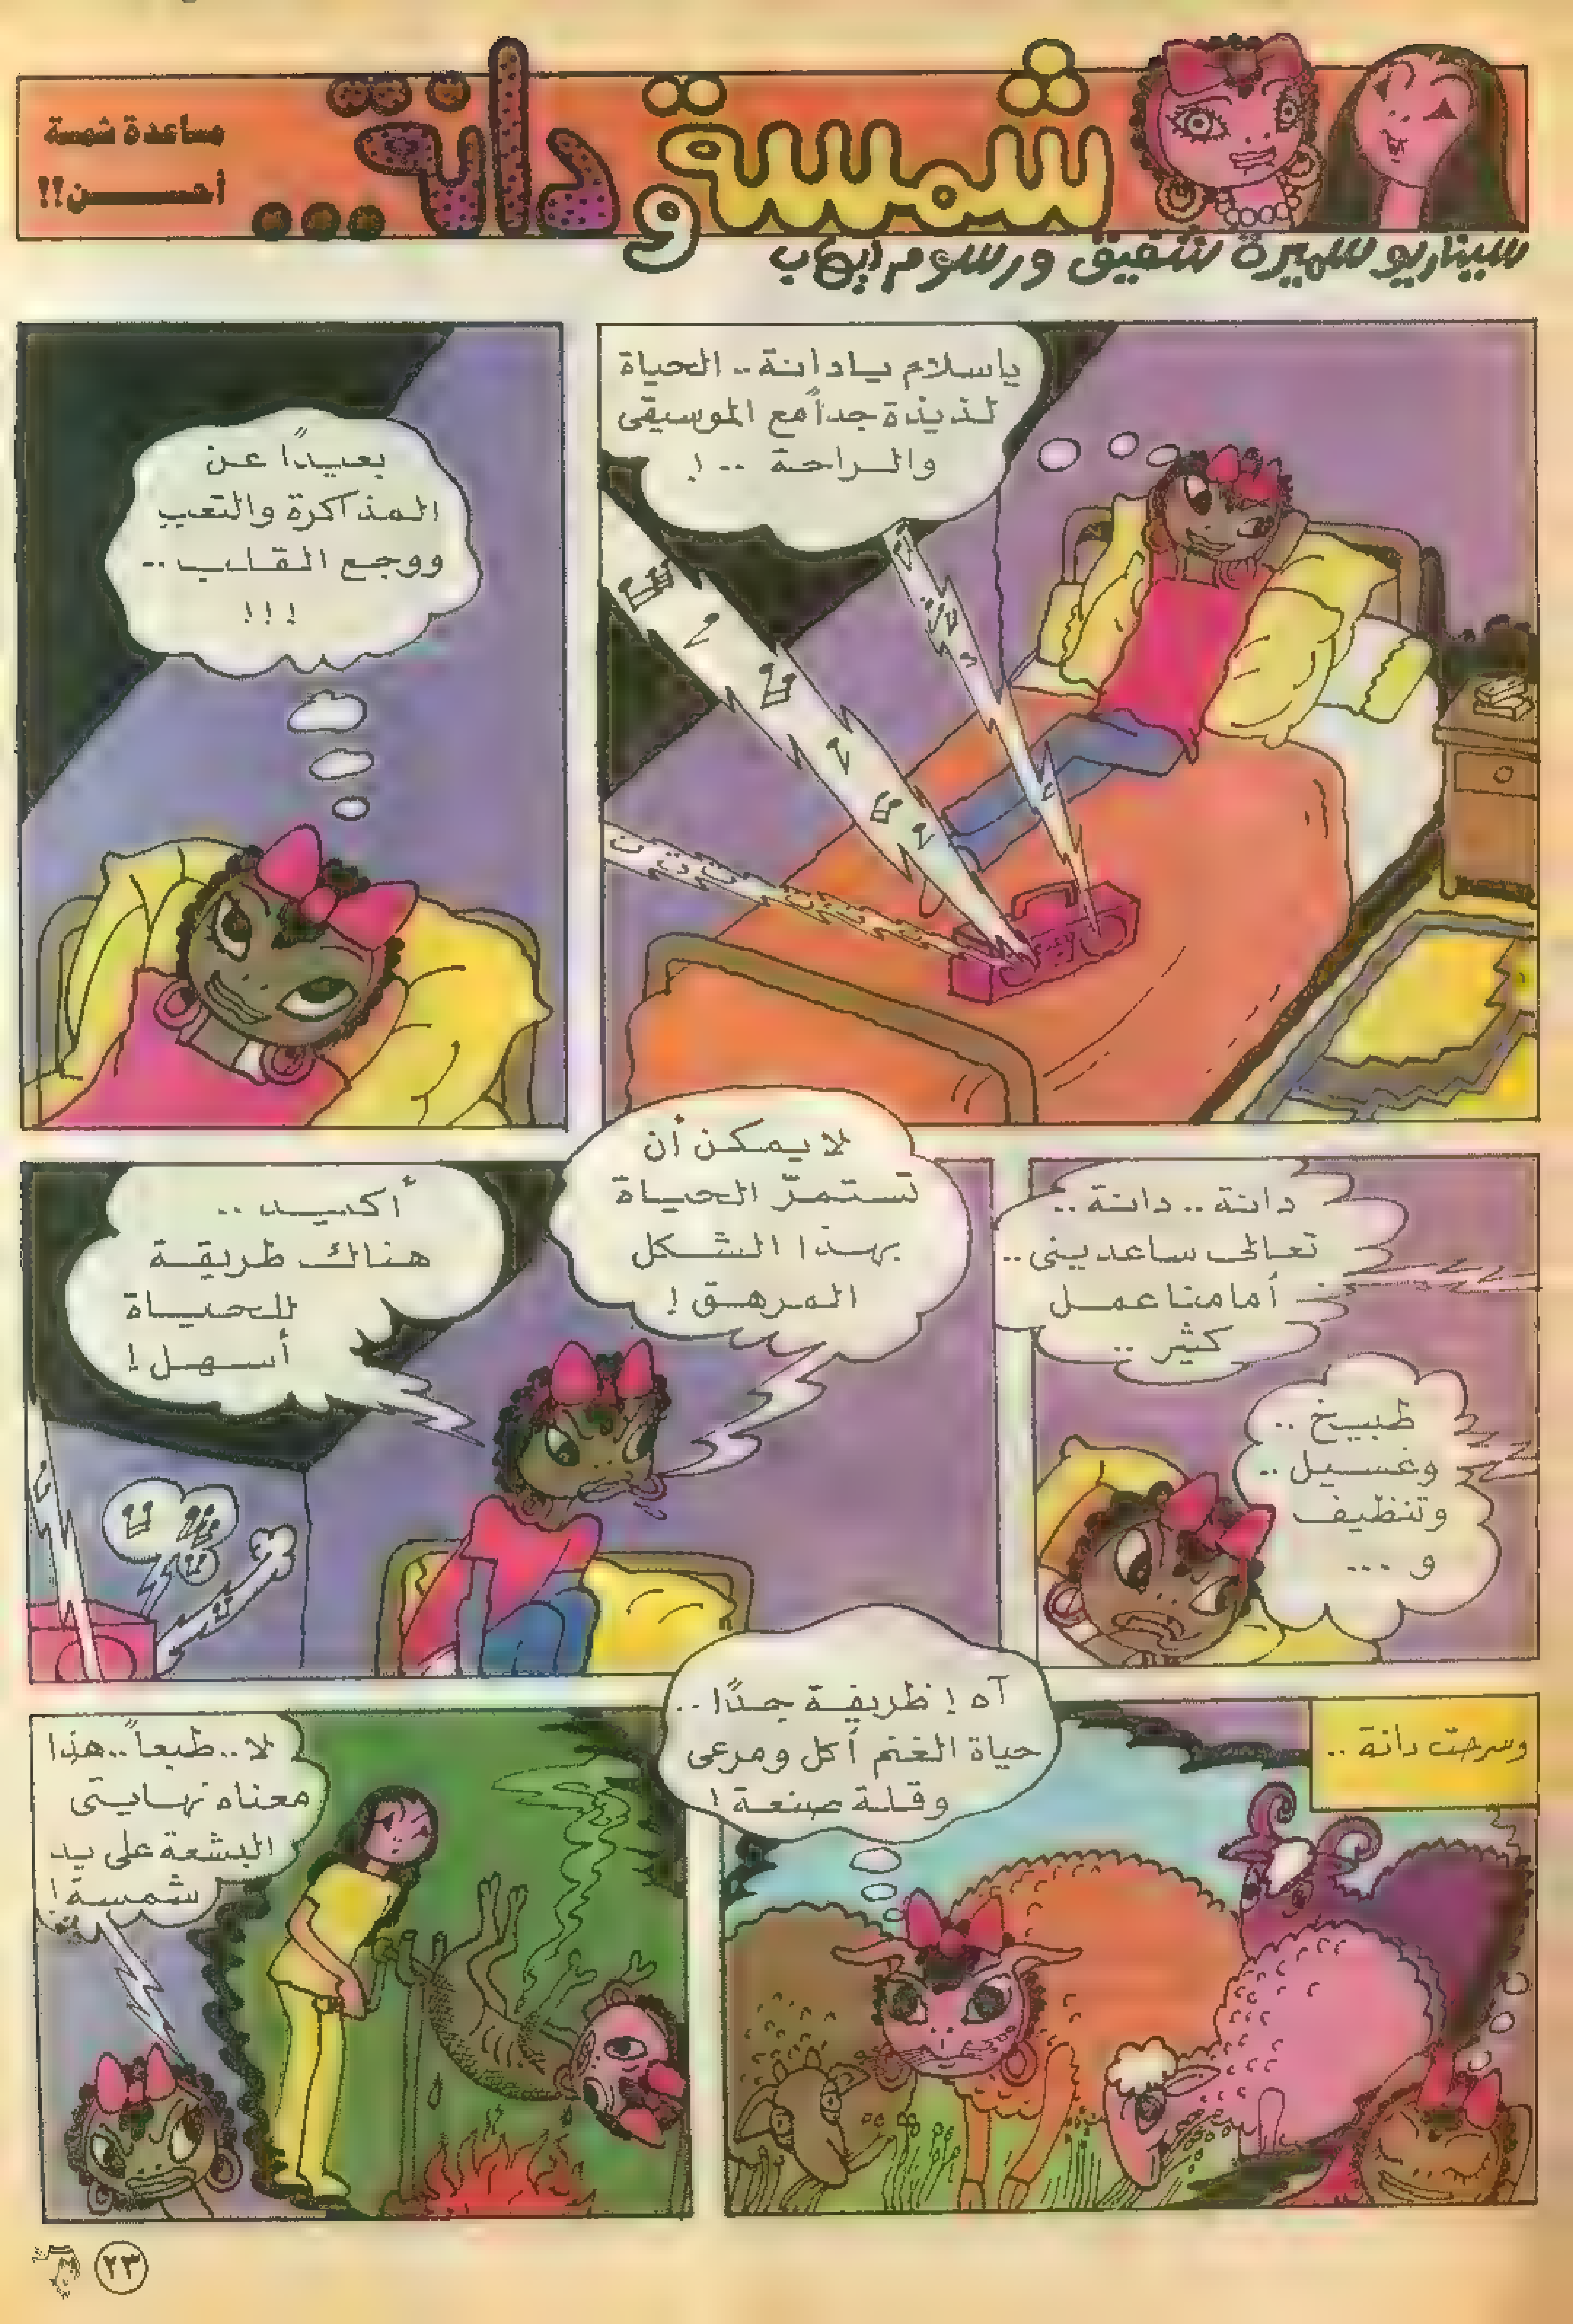 شمسة
و
دانة...
مساعدة شمسة
أحســـن!!
سيناريو سميرة شفيق ورسوم ايهاب
ياسلام يادانة.. الحياة
لذيذة جداً مع الموسيقى
والراحة ..!
بعيدًا عن
المذاكرة والتعب
ووجع القلب..
!!!
دانة.. دانة..
تعالى ساعدينى..
أمامنا عمل
كثير..
طبيخ..
وغسيل..
وتنظيف
و ...
لا يمكن أن
تستمرّ الحياة
بهذا الشكل
المرهق!
أكيد..
هناك طريقة
للحياة
أسهل!
وسرحت دانة..
آه! ظريفة جدًا..
حياة الغنم أكل ومرعى
وقلة صنعة!
لا.. طبعاً.. هذا
معناه نهايتى
البشعة على يد
شمسة!
٢٣